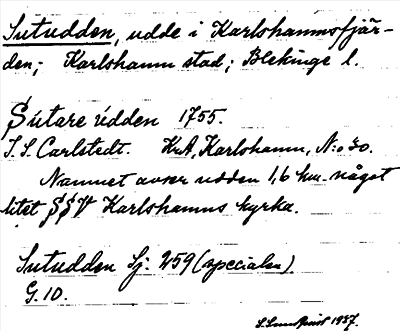 Sutudden, udde i Karlshamnsfjär-
den; Karlshamn stad; Blekinge l.
Sutare udden 1755.
J. S. Carlstedt. KrA, Karlshamn, N:o 30.
Namnet avser udden 1,6 km. något
litet SSV Karlshamns kyrka.
Sutudden Sj. 259 (specialen)
G. 10.
S. Lundqvist 1937.